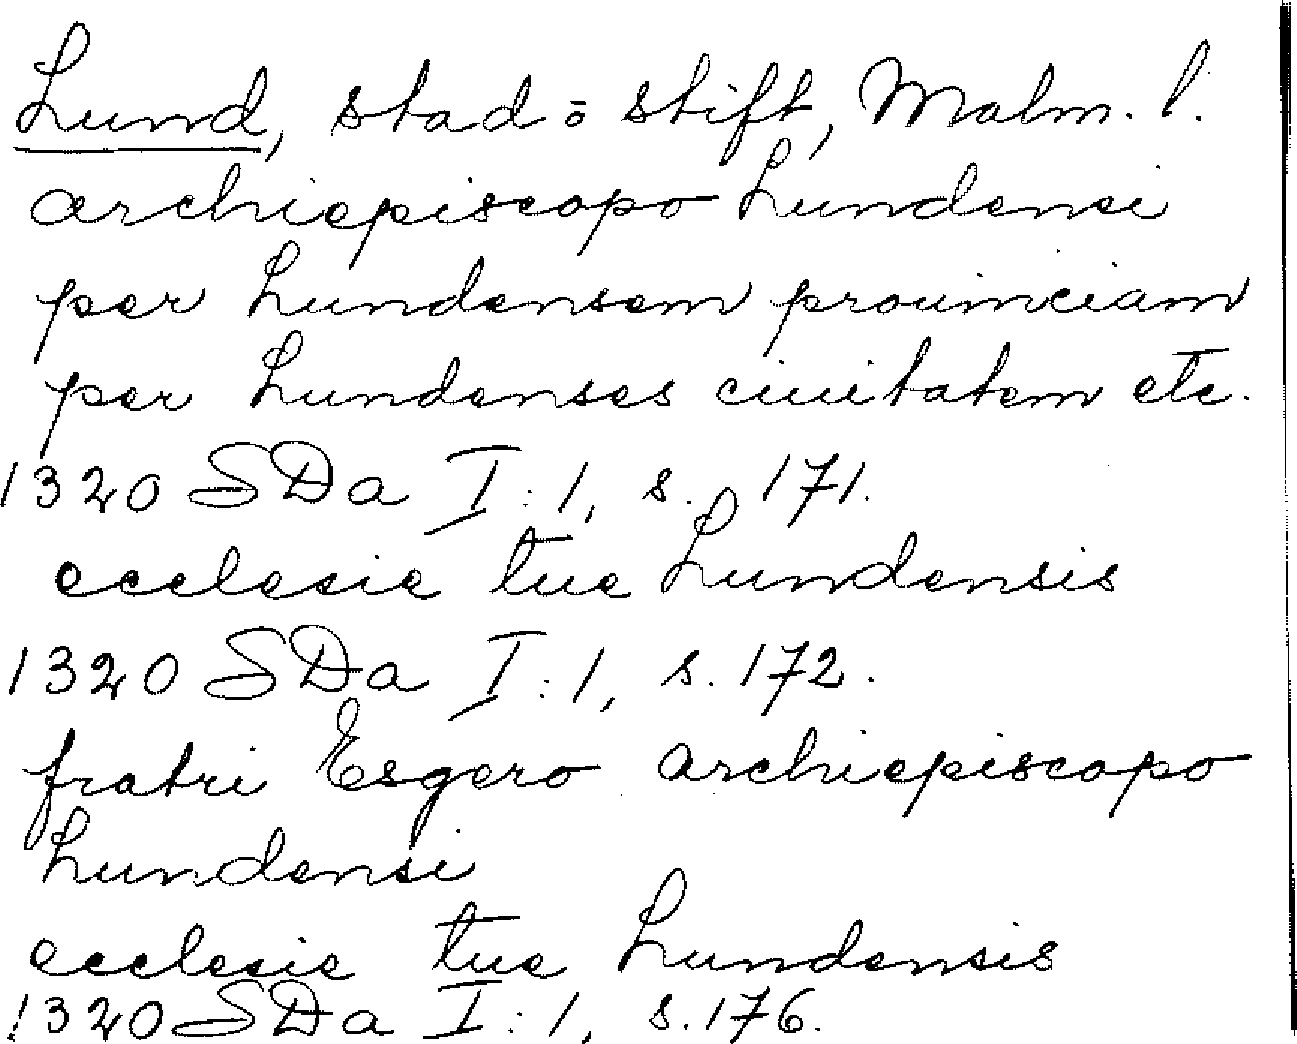 Lund, stad o stift, Malm. l.
archiepiscopo Lundensi
per Lundensem prouinciam
per Lundenses ciuitatem etc.
1320 SDa I:1, s. 171.
ecclesie tue Lundensis
1320 SDa I:1, s. 172.
fratri Esgero archiepiscopo
Lundensi
ecclesie tue Lundensis
1320 SDa I:1, s. 176.